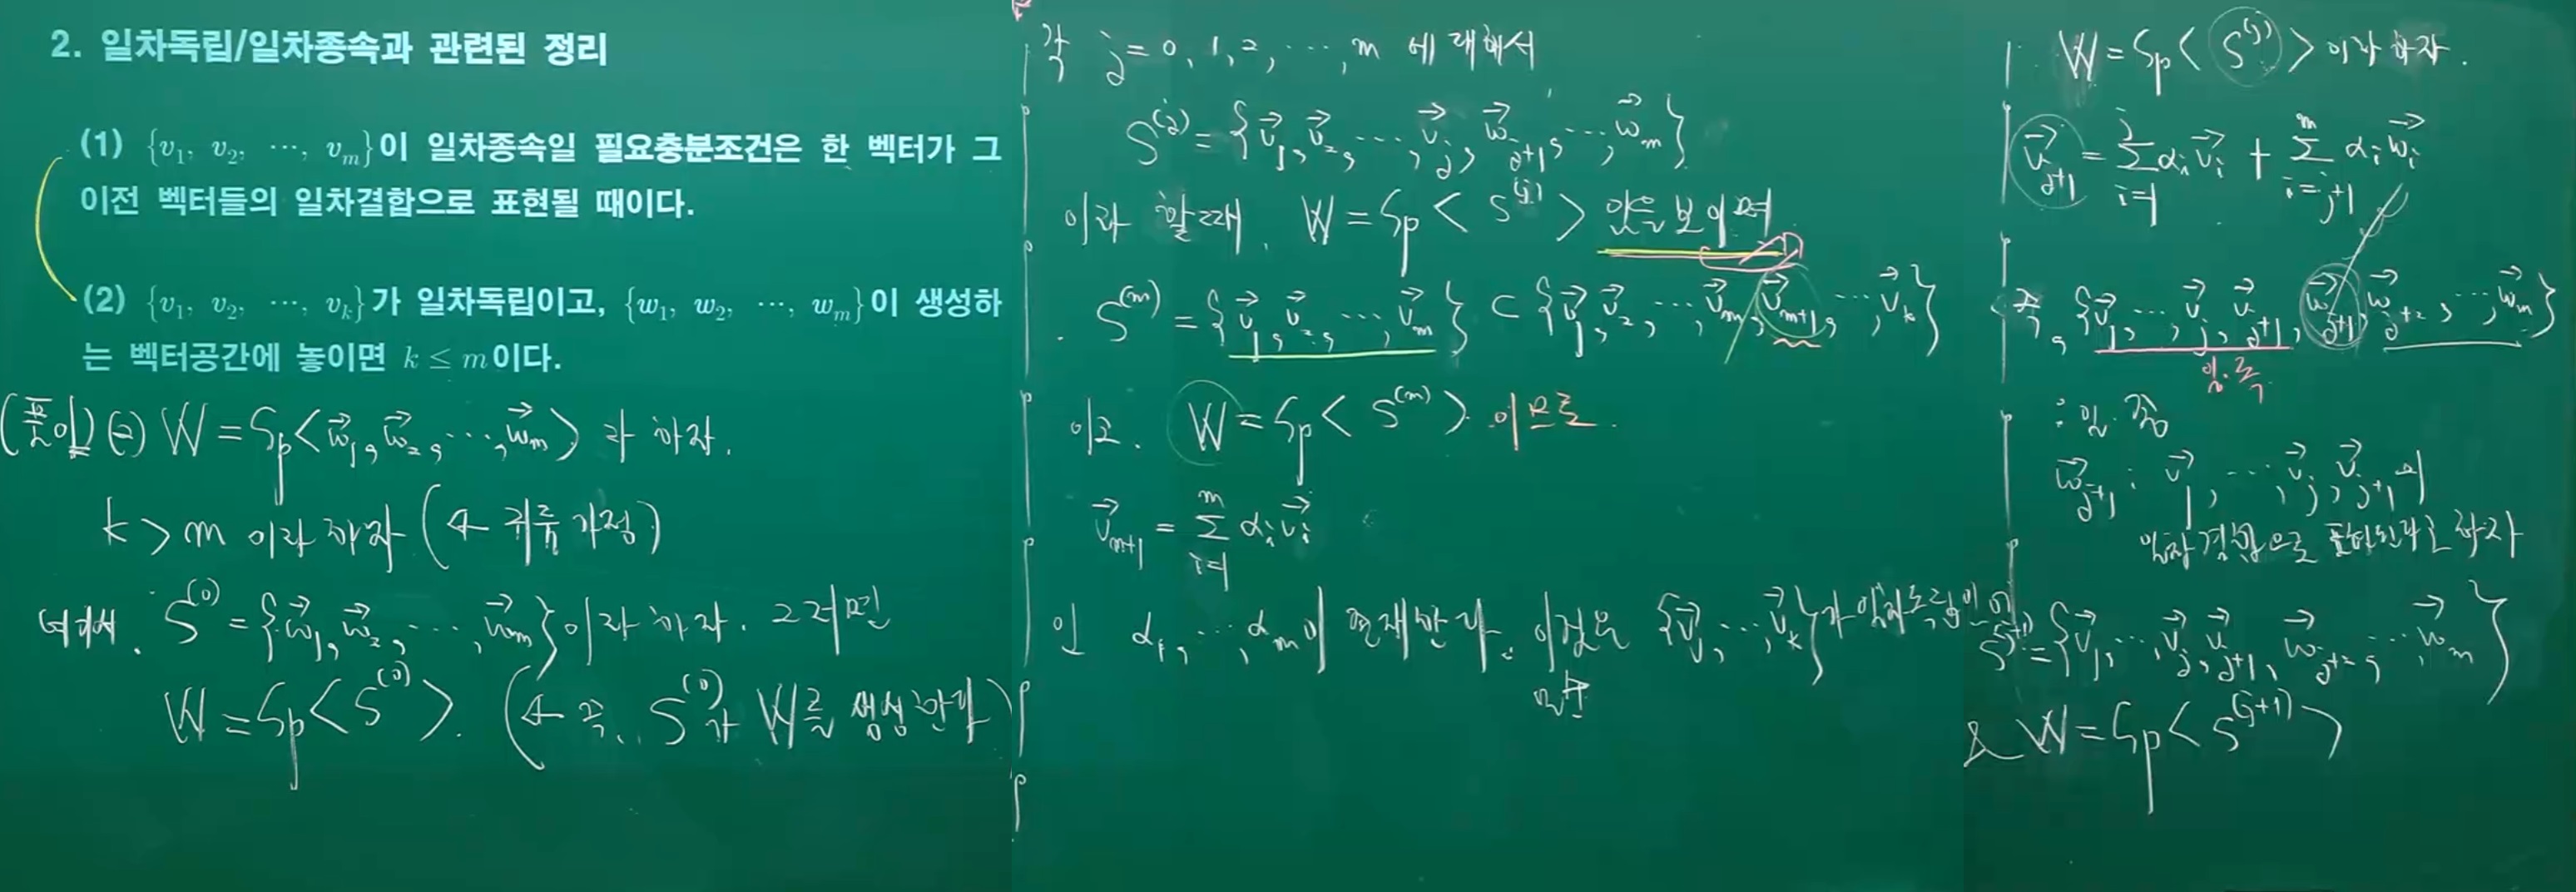 2. 일차독립/일차종속과 관련된 정리
(1) {v₁, v₂, ⋯, vₘ}이 일차종속일 필요충분조건은 한 벡터가 그
이전 벡터들의 일차결합으로 표현될 때이다.
(2) {v₁, v₂, ⋯, vₖ}가 일차독립이고, {w₁, w₂, ⋯, wₘ}이 생성하
는 벡터공간에 놓이면 k ≤ m이다.
(풀이) (2) W = Sp< w⃗₁, w⃗₂, ⋯, w⃗ₘ > 라 하자.
k > m 이라 하자 (← 귀류 가정)
여기서, S⁽⁰⁾ = {w⃗₁, w⃗₂, ⋯, w⃗ₘ}이라 하자. 그러면
W = Sp< S⁽⁰⁾ >. (← 즉, S⁽⁰⁾가 W를 생성한다)
각 j = 0, 1, 2, ⋯, m 에 대해서
S⁽ʲ⁾ = {v⃗₁, v⃗₂, ⋯, v⃗ⱼ, w⃗ⱼ₊₁, ⋯, w⃗ₘ}
이라 할 때, W = Sp< S⁽ʲ⁾ > 임을 보이면
S⁽ᵐ⁾ = {v⃗₁, v⃗₂, ⋯, v⃗ₘ} ⊂ {v⃗₁, v⃗₂, ⋯, v⃗ₘ, v⃗ₘ₊₁, ⋯, v⃗ₖ}
이고, W = Sp< S⁽ᵐ⁾ > 이므로
v⃗ₘ₊₁ = Σᵢ₌₁ᵐ αᵢv⃗ᵢ
인 α₁, ⋯, αₘ이 존재한다. 이것은 {v⃗₁, ⋯, v⃗ₖ}가 일차독립임에
모순
W = Sp< S⁽ʲ⁾ > 이라 하자.
v⃗ⱼ₊₁ = Σᵢ₌₁ʲ αᵢv⃗ᵢ + Σᵢ₌ⱼ₊₁ᵐ αᵢw⃗ᵢ
즉, {v⃗₁, ⋯, v⃗ⱼ, v⃗ⱼ₊₁, w⃗ⱼ₊₁, w⃗ⱼ₊₂, ⋯, w⃗ₘ}
일.독
: 일.종
w⃗ⱼ₊₁ : v⃗₁, ⋯, v⃗ⱼ, v⃗ⱼ₊₁의
일차결합으로 표현된다고 하자
S⁽ʲ⁺¹⁾ = {v⃗₁, ⋯, v⃗ⱼ, v⃗ⱼ₊₁, w⃗ⱼ₊₂, ⋯, w⃗ₘ}
& W = Sp< S⁽ʲ⁺¹⁾ >